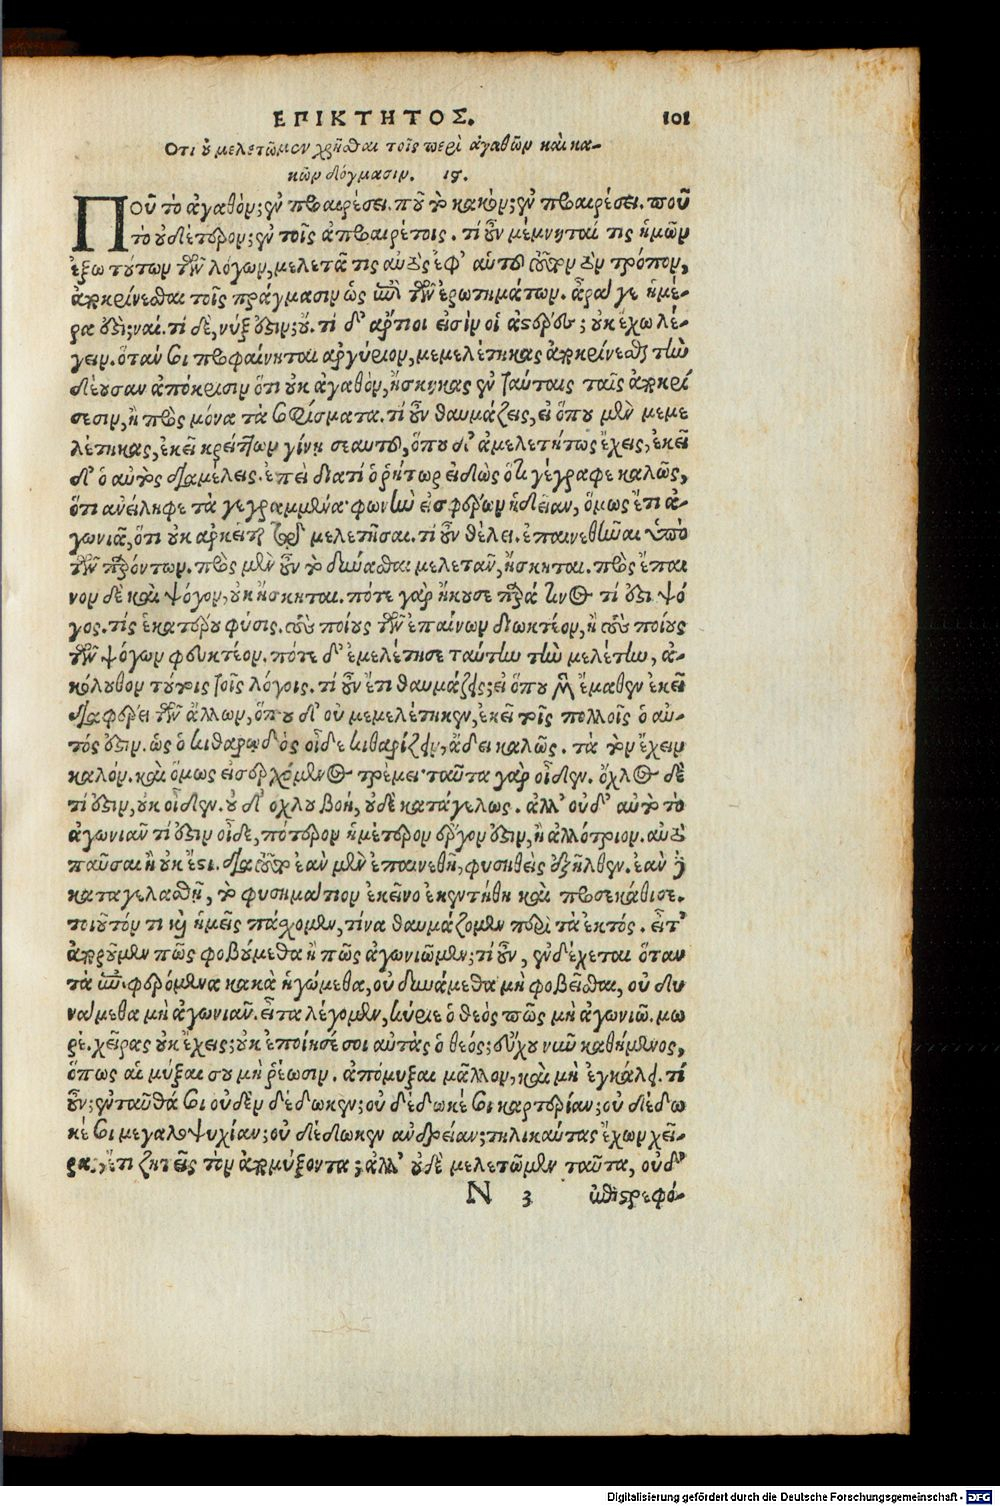 ΕΠΙΚΤΗΤΟΣ. 101
Οτι οὐ μελετῶμεν χρῆσθαι τοῖς περὶ ἀγαθῶν καὶ κα-
κῶν δόγμασιν. ιϛ.
ΠΟῦ τὸ ἀγαθόν; ἐν προαιρέσει. ποῦ τὸ κακόν; ἐν προαιρέσει. ποῦ
τὸ οὐδέτερον; ἐν τοῖς ἀπροαιρέτοις. τί οὖν μέμνηταί τις ἡμῶν
ἔξω τούτων τῶν λόγων, μελετᾶ τις αὐτὸς ἐφ' αὑτοῦ τοῦτον τὸν τρόπον,
ἀποκρίνεσθαι τοῖς πράγμασιν ὡς ἐπὶ τῶν ἐρωτημάτων. ἆρά γε ἡμέ-
ρα ἐστὶ; ναί. τί δὲ, νύξ ἐστιν; οὔ. τί δ' ἄρτιοι εἰσὶν οἱ ἀστέρες; οὐκ ἔχω λέ-
γειν. ὅταν σοι προφαίνηται ἀργύριον, μεμελέτηκας ἀποκρίνεσθαι τὴν
δέουσαν ἀπόκρισιν ὅτι οὐκ ἀγαθὸν, ἤσκηκας ἐν ταύταις ταῖς ἀποκρί
σεσιν, ἢ πρὸς μόνα τὰ σοφίσματα. τί οὖν θαυμάζεις, εἰ ὅπου μὲν μεμε
λέτηκας, ἐκεῖ κρείττων γίνῃ σεαυτοῦ, ὅπου δ' ἀμελετήτως ἔχεις, ἐκεῖ
δ' ὁ αὐτὸς διαμένεις. ἐπεὶ διατί ὁ ῥήτωρ εἰδὼς ὅτι γέγραφε καλῶς,
ὅτι ἀνείληφε τὰ γεγραμμένα· φωνὴν εἰσφέρων ἡδεῖαν, ὅμως ἔτι ἀ-
γωνιᾶ, ὅτι οὐκ ἀρκεῖται τῷ μελετῆσαι. τί οὖν θέλει. ἐπαινεθῆναι ὑπὸ
τῶν παρόντων. πρὸς μὲν οὖν τὸ δύνασθαι μελετᾶν, ἤσκηται. πρὸς ἔπαι
νον δὲ καὶ ψόγον, οὐκ ἤσκηται. πότε γὰρ ἤκουσε παρά τινος τί ἐστι ψό
γος. τίς ἑκατέρου φύσις. τοὺς ποίους τῶν ἐπαίνων διωκτέον, ἢ τοὺς ποίους
τῶν ψόγων φευκτέον. πότε δ' ἐμελέτησε ταύτην τὴν μελέτην, ἀ-
κόλουθον τούτοις τοῖς λόγοις. τί οὖν ἔτι θαυμάζεις; εἰ ὅπου μὲν ἔμαθεν ἐκεῖ
διαφέρει τῶν ἄλλων, ὅπου δ' οὐ μεμελέτηκεν, ἐκεῖ τοῖς πολλοῖς ὁ αὐ-
τός ἐστιν. ὡς ὁ κιθαρῳδὸς οἶδε κιθαρίζειν, ᾄδει καλῶς. τὰ τὸν ἔχειν
καλόν. καὶ ὅμως εἰσερχόμενος τρέμει· ταῦτα γὰρ οἶδεν. ὄχλος δὲ
τί ἐστιν, οὐκ οἶδεν. οὐ δ' ὄχλου βοή, οὐδὲ κατάγελως. ἀλλ' οὐδ' αὐτὸ τὸ
ἀγωνιᾶν τί ἐστιν οἶδε, πότερον ἡμέτερον ἔργον ἐστιν, ἢ ἀλλότριον. αὐτὸ
παῦσαι ἢ οὐκ ἔστι. διὰ τοῦτο ἐὰν μὲν ἐπαινεθῇ, φυσηθεὶς ἐξῆλθεν. ἐὰν δὲ
καταγελασθῇ, τὸ φυσημάτιον ἐκεῖνο ἐκεντήθη καὶ προσεκάθισε.
τοιοῦτόν τι καὶ ἡμεῖς πάσχομεν, τίνα θαυμάζομεν περὶ τὰ ἐκτός. εἶτ'
ἀποροῦμεν πῶς φοβούμεθα ἢ πῶς ἀγωνιῶμεν; τί οὖν, ἐνδέχεται ὅταν
τὰ ἐπιφερόμενα κακὰ ἡγώμεθα, οὐ δυνάμεθα μὴ φοβεῖσθαι, οὐ δυ
νάμεθα μὴ ἀγωνιᾶν. εἶτα λέγομεν, κύριε ὁ θεὸς πῶς μὴ ἀγωνιῶ. μω
ρέ. χεῖρας οὐκ ἔχεις; οὐκ ἐποίησέ σοι αὐτὰς ὁ θεός; εὔχου νῦν καθήμενος,
ὅπως αἱ μύξαι σου μὴ ῥέωσιν. ἀπόμυξαι μᾶλλον, καὶ μὴ ἐγκάλει. τί
οὖν; ἐνταῦθά σοι οὐδὲν δέδωκεν; οὐ δέδωκέ σοι καρτερίαν; οὐ δέδω
κέ σοι μεγαλοψυχίαν; οὐ δέδωκεν ἀνδρείαν; τηλικαύτας ἔχων χεῖ-
ρας, ἔτι ζητεῖς τὸν ἀπομύξοντα; ἀλλ' οὐδὲ μελετῶμεν ταῦτα, οὐδ'
N 3 ἐπιστρεφό-
Digitalisierung gefördert durch die Deutsche Forschungsgemeinschaft - DFG